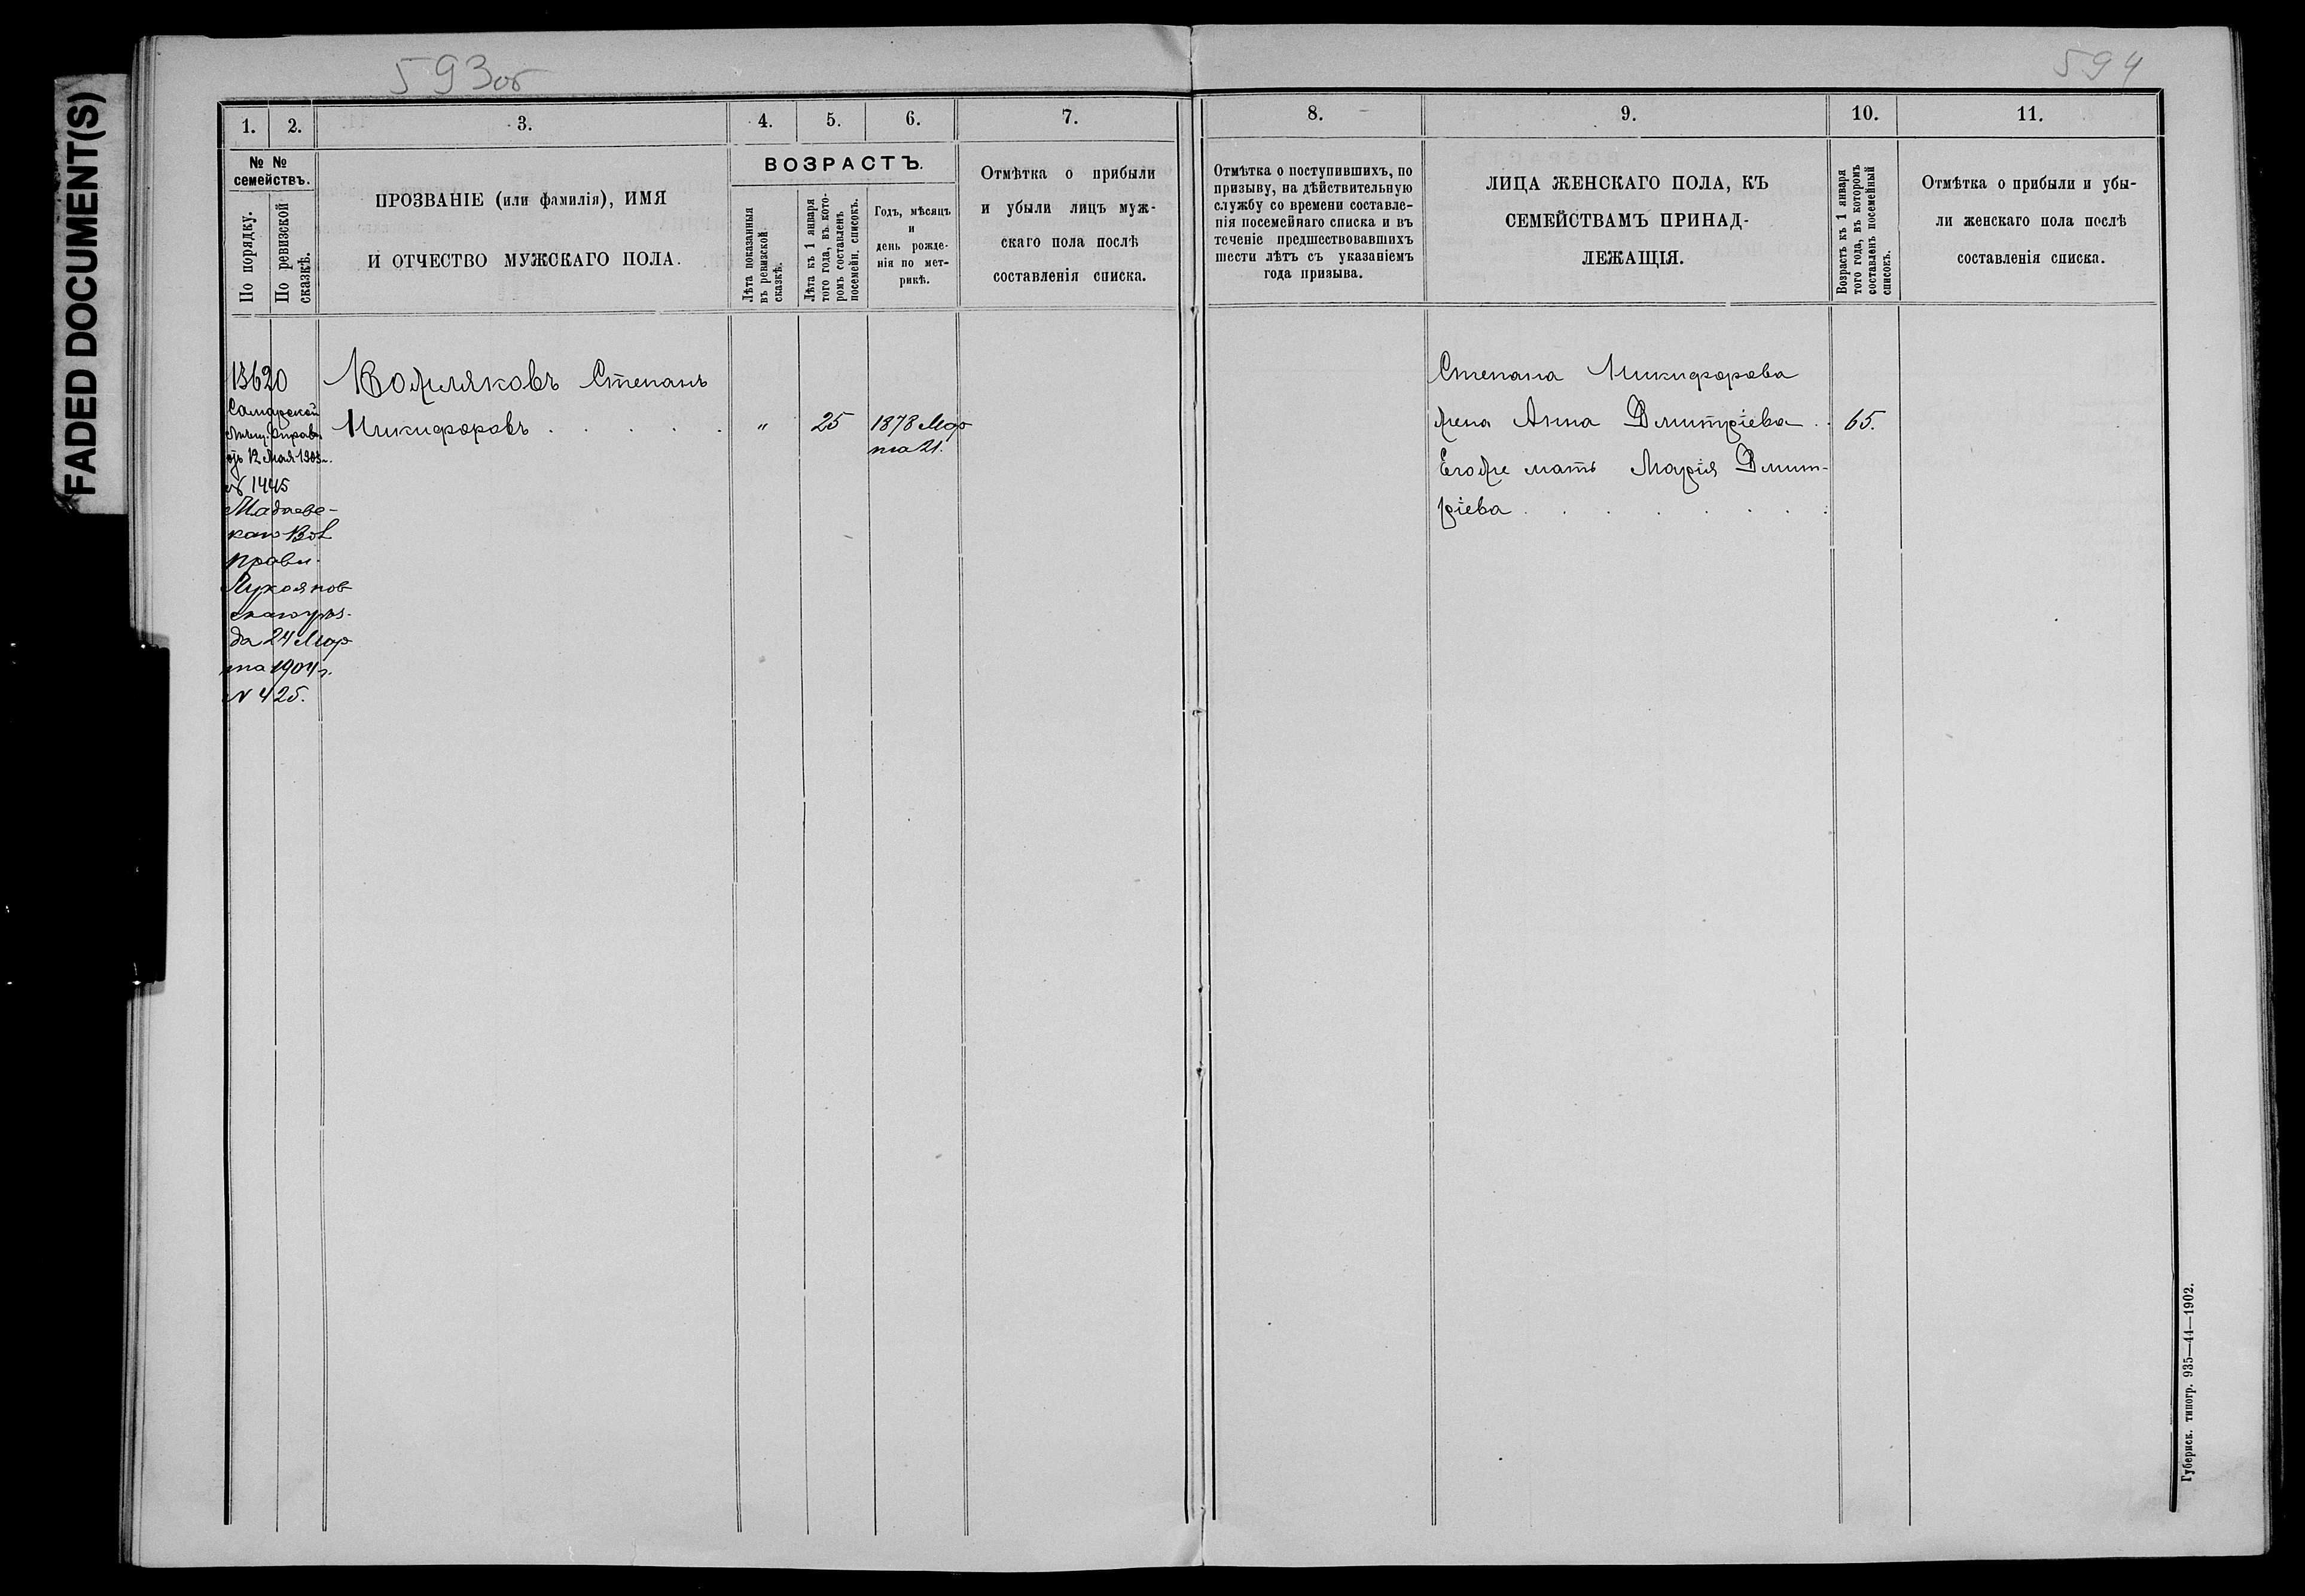 FADED DOCUMENT(S)
593об
594
1. 2. 3. 4. 5. 6. 7.
№ № семействъ.
По порядку.
По ревизской сказкѣ.
ПРОЗВАНІЕ (или фамилія), ИМЯ
И ОТЧЕСТВО МУЖСКАГО ПОЛА.
ВОЗРАСТЪ.
Лѣта показанныя
въ ревизской
сказкѣ.
Лѣта къ 1 января
того года, въ кото-
ромъ составленъ
посемейн. списокъ.
Годъ, мѣсяцъ
и
день рожде-
нія по мет-
рикѣ.
Отмѣтка о прибыли
и убыли лицъ муж-
скаго пола послѣ
составленія списка.
13620
Самарской
Мѣщ. Управы
отъ 12 Мая 1903 г.
№ 1445
Мадаевс-
каго Вол
правл.
Лукоянов
скаго уѣз-
да 24 Мар
та 1904 г.
№ 425.
Кожмяковъ Степанъ
Никифоровъ . . . . . „ 25 1878 Мар
та 21.
8. 9. 10. 11.
Отмѣтка о поступившихъ, по
призыву, на дѣйствительную
службу со времени составле-
нія посемейнаго списка и въ
теченіе предшествовавшихъ
шести лѣтъ съ указаніемъ
года призыва.
ЛИЦА ЖЕНСКАГО ПОЛА, КЪ
СЕМЕЙСТВАМЪ ПРИНАД-
ЛЕЖАЩІЯ.
Возрастъ къ 1 января
того года, въ которомъ
составленъ посемейный
списокъ.
Отмѣтка о прибыли и убы-
ли женскаго пола послѣ
составленія списка.
Степана Никифорова
жена Анна Дмитріева . . 65.
Егоже мать Марія Дмит-
ріева . . . . . . . :
Губернск. типогр. 935—44—1902.